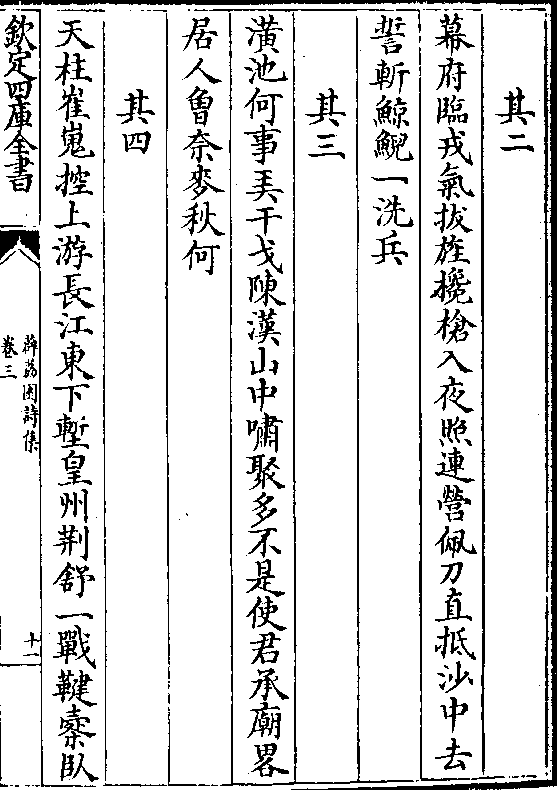 其二
幕府臨戎氣拔旌攙槍入夜照連營佩刀直抵沙中去
誓斬鯨鯢一洗兵
其三
潢池何事弄干戈陳漢山中嘯聚多不是使君承廟畧
居人曾奈麥秋何
其四
天柱崔嵬控上游長江東下塹皇州荆舒一戰鞬櫜臥
欽定四庫全書
薜荔園詩集
卷三
十一